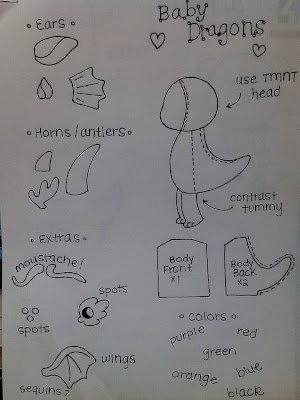 Baby
Dragons
• Ears •
use TMNT
head
• Horns/antlers •
contrast
tummy
• Extras •
moustache!
spots
spots
wings
sequins?
Body
Front
x1
Body
Back
x2
• colors •
purple
red
green
orange
blue
black